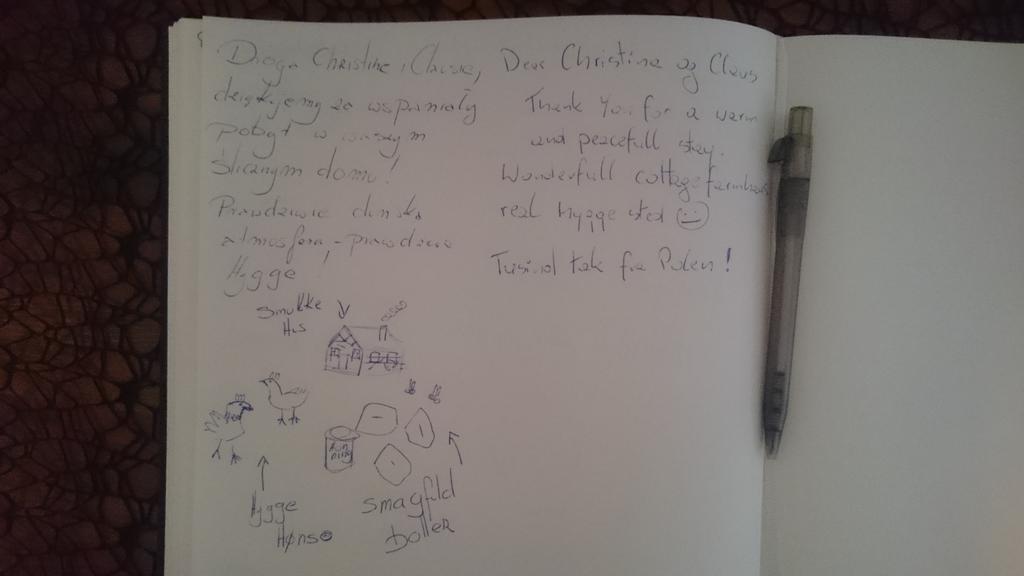 Droga Christine i Clausie,
dziękujemy za wspaniały
pobyt w waszym
ślicznym domu!
Prawdziwie duńska
atmosfera - prawdziwe
Hygge!
Dear Christina og Claus
Thank You for a warm
and peacefull stay.
Wonderfull cottage farmhouse
real hygge sted
Tusind tak fra Polen!
Smukke
Hus
Hon
ning
Hygge
Høns
Smagfuld
Boller